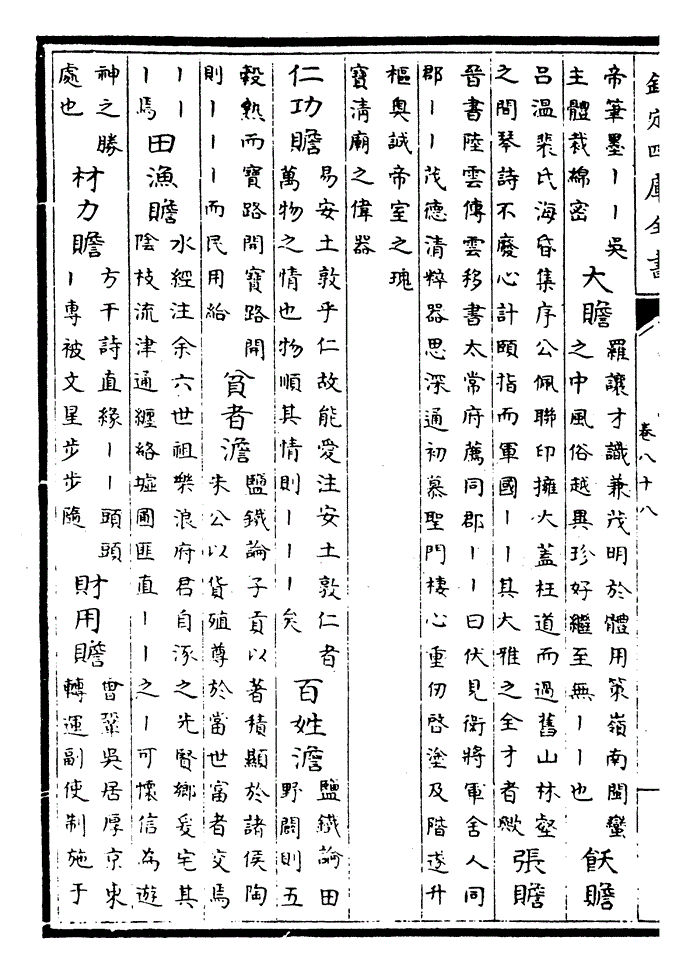 欽定四庫全書 卷八十八
帝筆墨丨丨吳
主體裁綿密
大贍
羅讓才識兼茂明於體用策嶺南閩蠻
之中風俗越異珍好繼至無丨丨也
飫贍
呂温裴氏海昏集序公佩聯印擁大蓋枉道而過舊山林壑
之間琴詩不廢心計頤指而軍國丨丨其大雅之全才者歟
張贍
晉書陸雲傳雲移書太常府薦同郡丨丨曰伏見衛將軍舍人同
郡丨丨茂德清粹器思深通初慕聖門棲心重仞啓塗及階遂升
樞奥誠帝室之瑰
寶清廟之偉器
仁功贍
易安土敦乎仁故能愛注安土敦仁者
萬物之情也物順其情則丨丨丨矣
百姓澹
鹽鐵論田
野闢則五
穀熟而寶路開寶路開
則丨丨丨而民用給
貧者澹
鹽鐵論子貢以著積顯於諸侯陶
朱公以貨殖尊於當世富者交焉
丨丨
丨焉
田漁贍
水經注余六世祖樂浪府君自涿之先賢鄉爰宅其
陰枝流津通纏絡墟圃匪直丨丨之丨可懷信為遊
神之勝
處也
材力贍
方干詩直緣丨丨頭頭
丨專被文星步步隨
財用贍
曾鞏吳居厚京東
轉運副使制施于